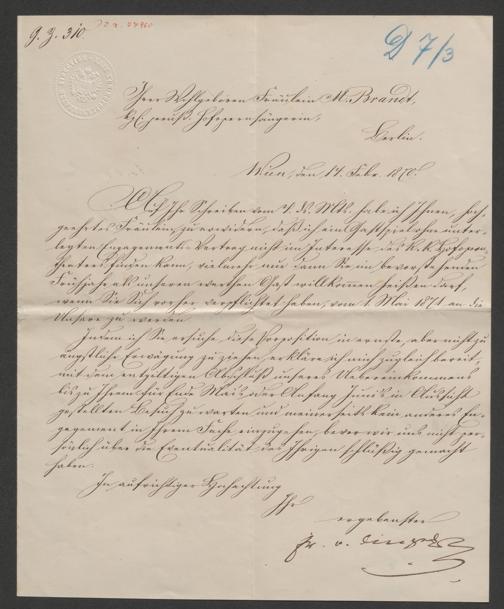 G. Z. 310
D 7/3
Ihrer Wohlgeboren Fräulein M. Brandt,
Kgl. preuß. Hofopernsängerin,
Berlin.
Wien, den 14. Febr. 1870.
Auf Ihr Schreiben vom 7. ds. Mts. habe ich Ihnen, hoch-
geehrtes Fräulein, zu erwidern, daß ich ein Gastspiel ohne unter-
legten Engagements-Vertrag nicht im Interesse des K. K. Hofopern-
theaters finden kann, vielmehr nur dann Sie im bevorstehenden
Frühjahr als unseren werthen Gast willkommen heißen darf,
wenn Sie Sich vorher verpflichtet haben, vom 1. Mai 1871 an die
Unsere zu werden.
Indem ich Sie ersuche, diese Proposition in ernste, aber nicht zu
ängstliche Erwägung zu ziehen, erkläre ich mich zugleich bereit,
mit dem entgiltigen Abschluß unseres Uebereinkommens
bis zu Ihrem für Ende Mai oder Anfang Juni in Aussicht
gestellten Besuch zu warten und meinerseits kein anderes En-
gagement in Ihrem Fache einzugehen, bevor wir uns nicht per-
sönlich über die Eventualität des Ihrigen schlüßig gemacht
haben.
In aufrichtiger Hochachtung
Ihr
ergebenster